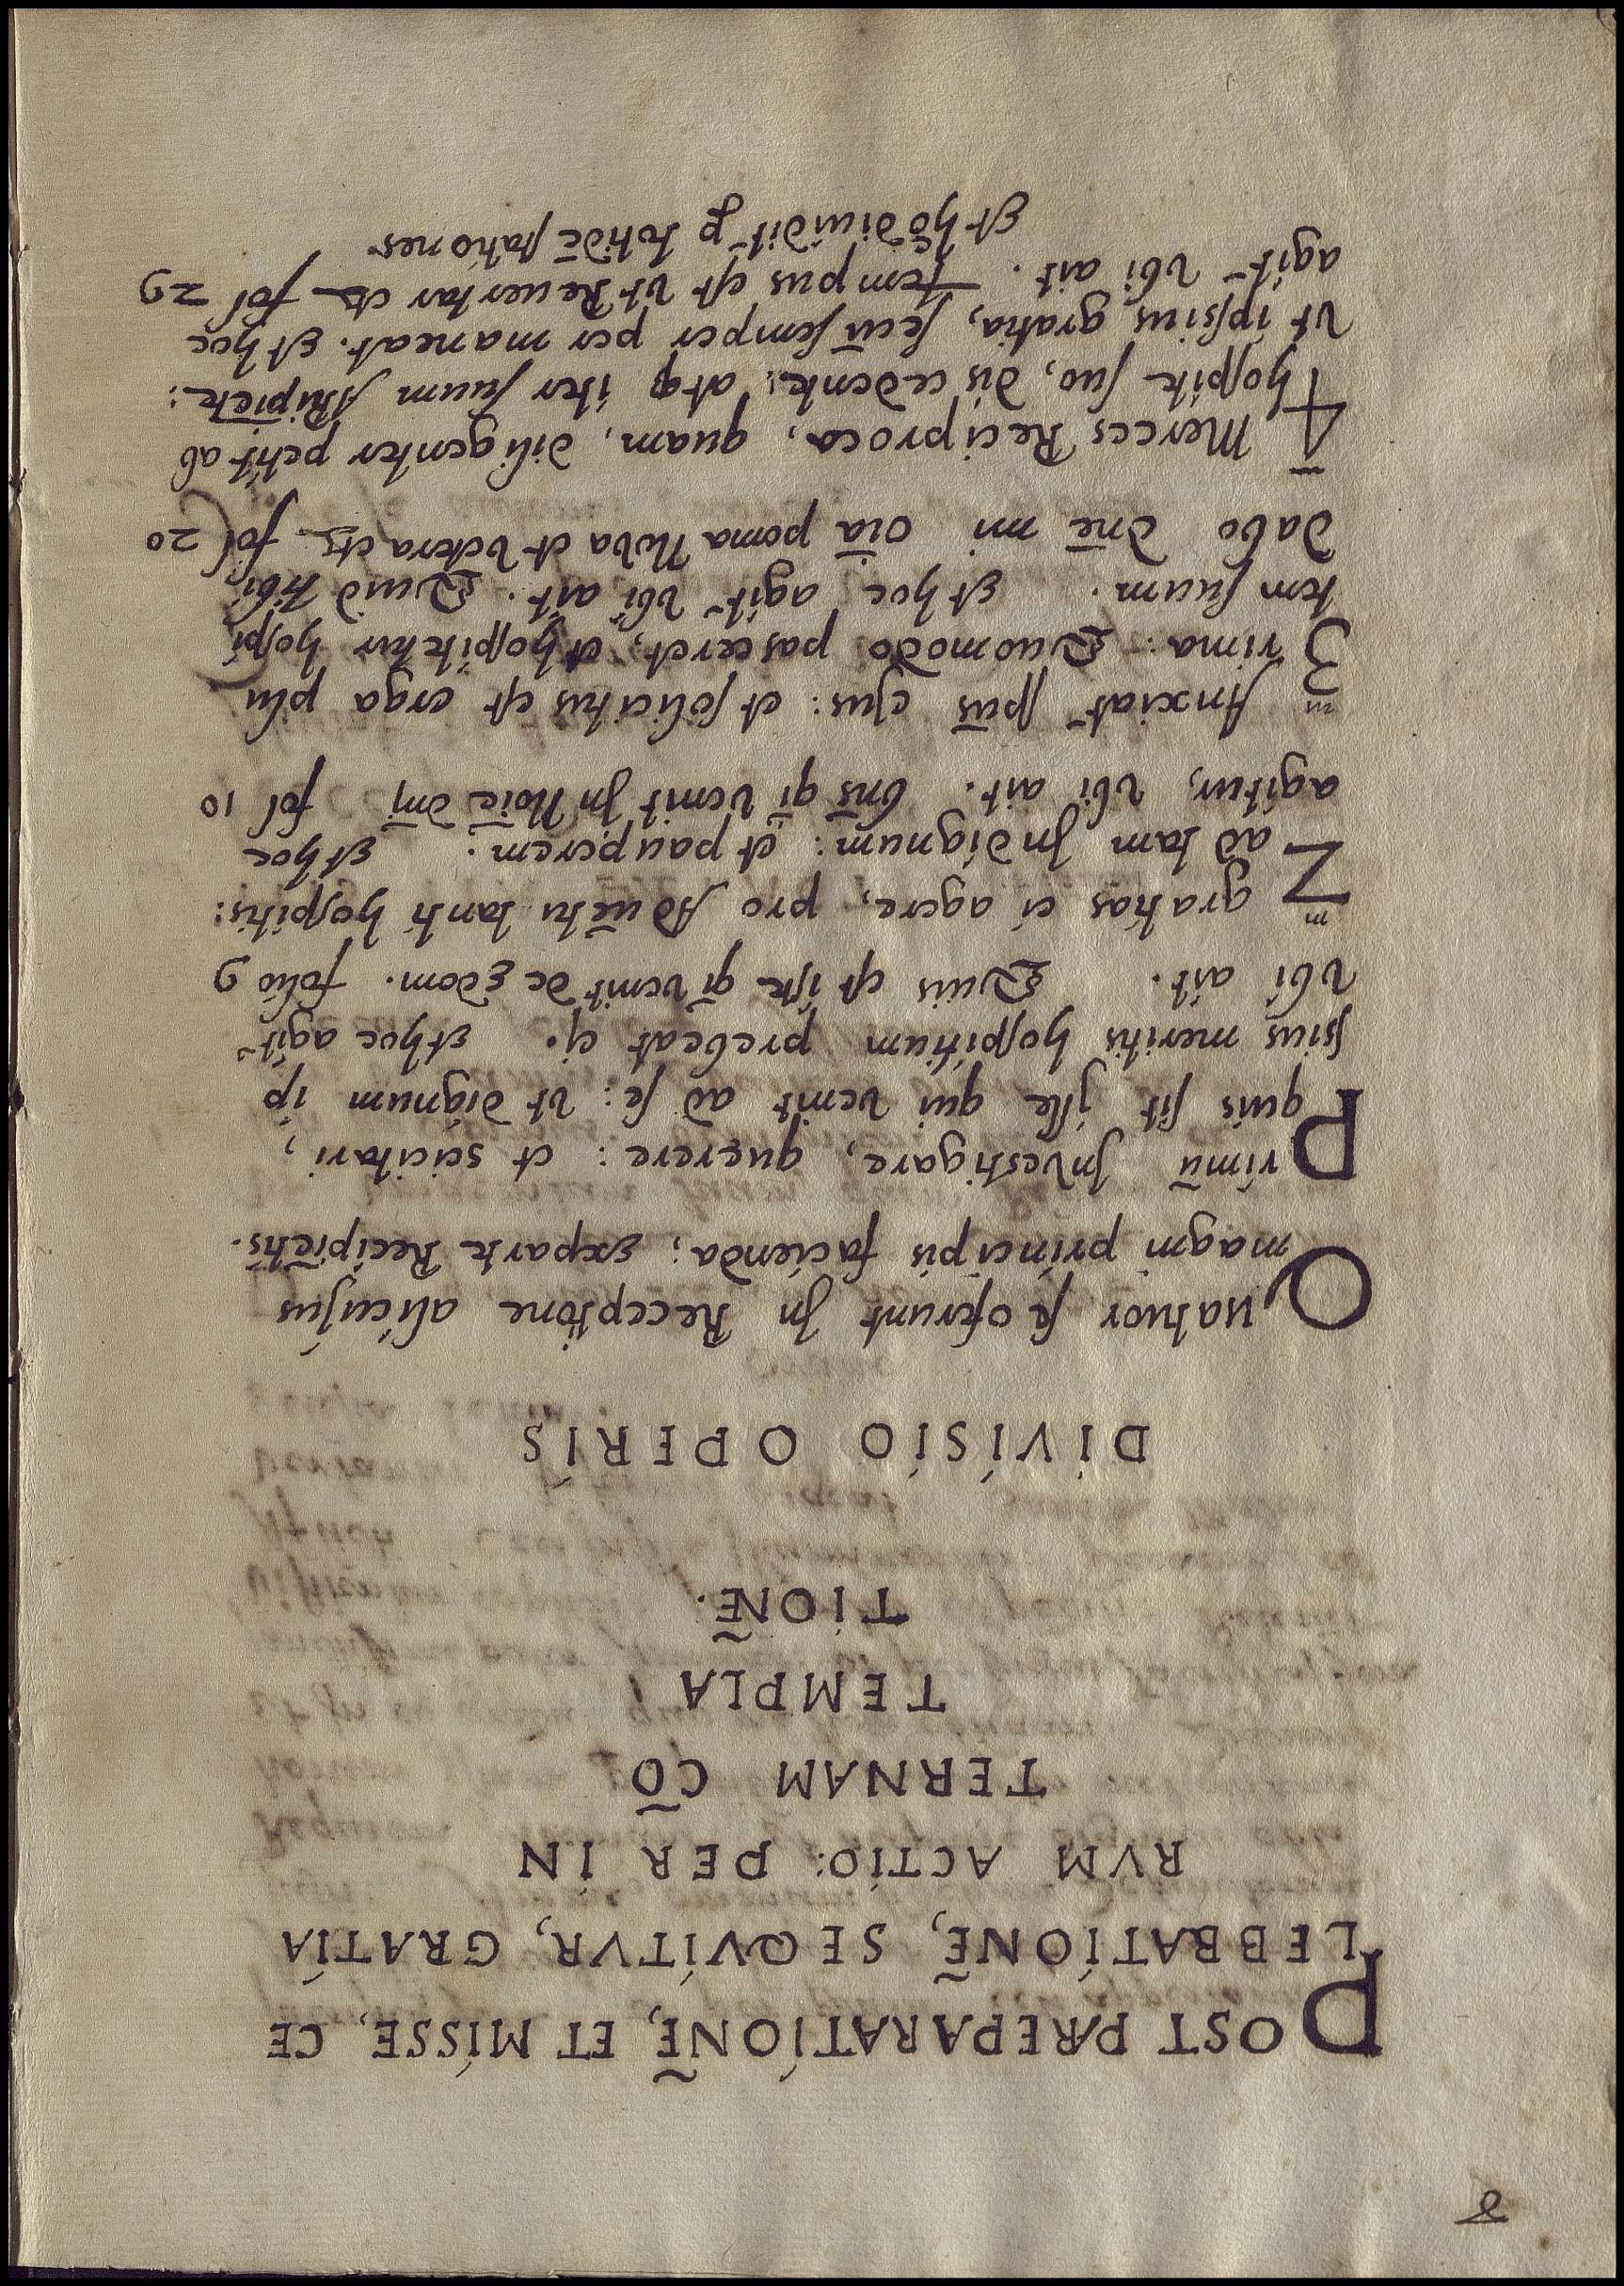 8
POST PRÆPARATIONẼ, ET MISSE, CE
LEBRATIONẼ, SEQVITVR, GRATIA
RVM ACTIO: PER IN
TERNAM CÕ
TEMPLA
TIONẼ.
DIVISIO OPERIS
Quatuor se oferunt In Receptione alicuius
magni principis facienda; Exparte Recipiẽtis.
Primũ Investigare, querere: et scicitari,
quis sit iste qui venit ad se: vt dignum ip
sius meritis hospitium prebeat ej. Et hoc agit~
vbi ait. Quis est iste qĩ venit de Edom. folio 9
2m gratias ei agere, pro Aduẽtu tanti hospitis:
ad tam Indignum: et pauperem. Et hoc
agitur, vbi ait. bñs qĩ venit In Noĩe dñj fol 10
3m Anxiat~ spũs ejus: et solicitus est erga plu
rima. Quomodo pasceret, et hospitetur hospi
tem suum. Et hoc agit~ vbi ait. Quid tibi
dabo dñe mi oĩa poma Nova et vetera etc fol 20
4 Merces Reciproca, quam, diligenter petit ab
hospite suo, discedente: atq iter suum Aripiẽte:
vt ipsius gratia, secũ semper per maneat. Et hoc
agit~ vbi ait. tempus est vt Reuertar etc fol 29
Et hõ diuidit~ p totidẽ stationes